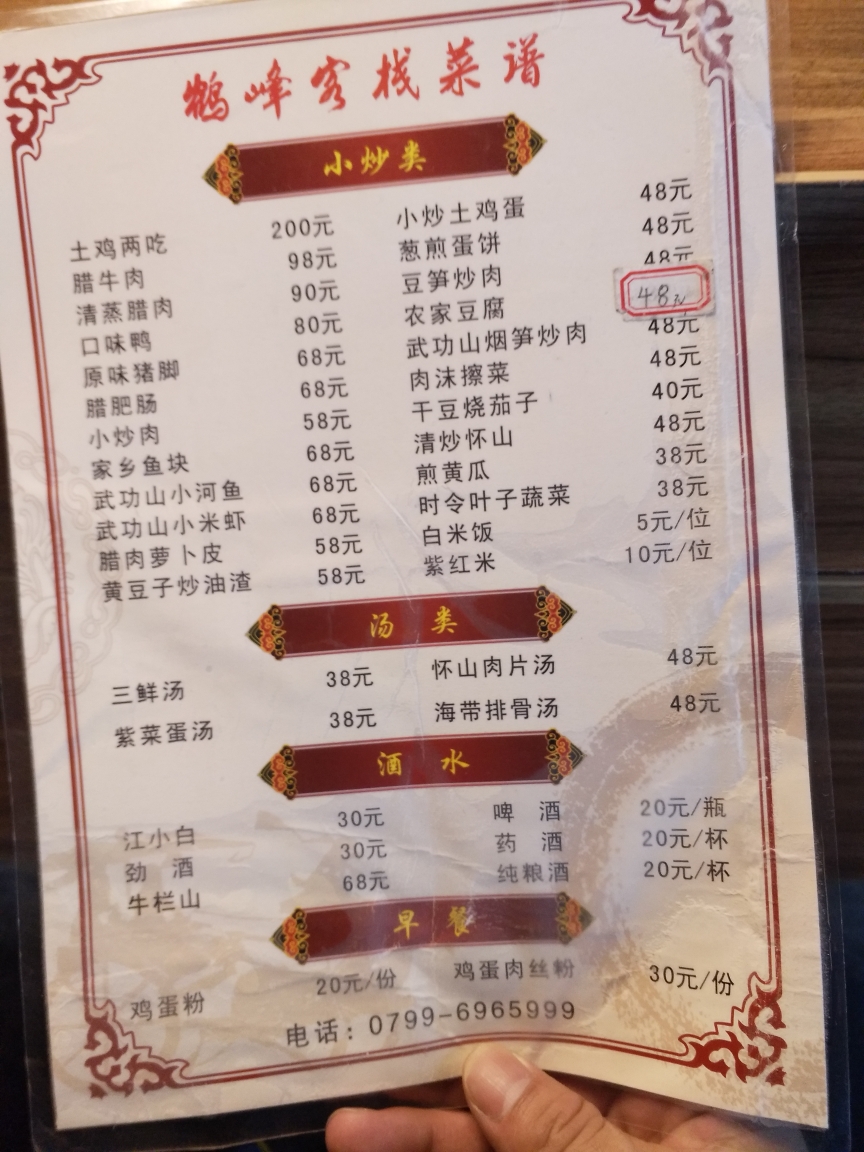 鹤峰客栈菜谱
小炒类
土鸡两吃 200元 小炒土鸡蛋 48元
腊牛肉 98元 葱煎蛋饼 48元
清蒸腊肉 90元 豆笋炒肉 48元
口味鸭 80元 农家豆腐 48元
原味猪脚 68元 武功山烟笋炒肉 48元
腊肥肠 68元 肉沫擦菜 48元
小炒肉 58元 干豆烧茄子 40元
家乡鱼块 68元 清炒怀山 48元
武功山小河鱼 68元 煎黄瓜 38元
武功山小米虾 68元 时令叶子蔬菜 38元
腊肉萝卜皮 58元 白米饭 5元/位
黄豆子炒油渣 58元 紫红米 10元/位
汤 类
三鲜汤 38元 怀山肉片汤 48元
紫菜蛋汤 38元 海带排骨汤 48元
酒 水
江小白 30元 啤 酒 20元/瓶
劲 酒 30元 药 酒 20元/杯
牛栏山 68元 纯粮酒 20元/杯
早 餐
鸡蛋粉 20元/份 鸡蛋肉丝粉 30元/份
电话：0799-6965999